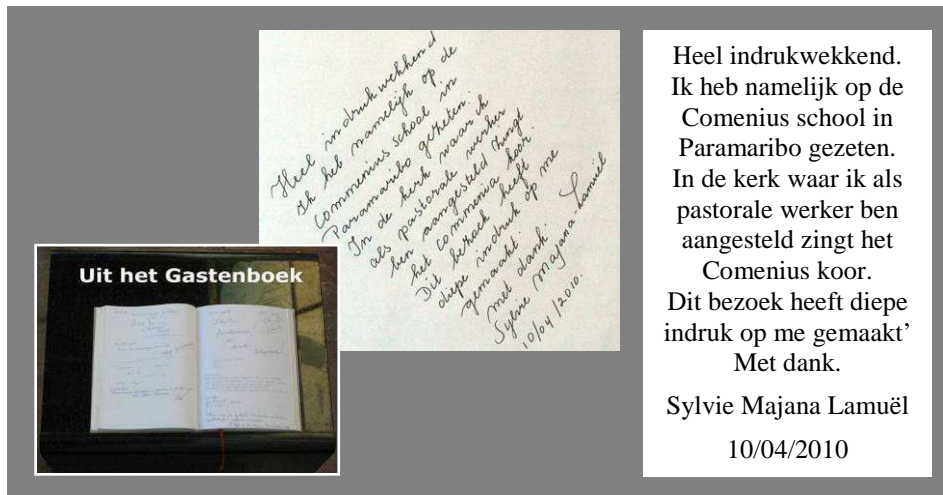 Heel indrukwekkend
Ik heb namelijk op de
Commenius school in
Paramaribo gezeten.
In de kerk waar ik
als pastorale werker
ben aangesteld zingt
het commenia koor.
Dit bezoek heeft
diepe indruk op me
gemaakt.
met dank
Sylvie Majana-Lamuël
10/04/2010.
Uit het Gastenboek
Heel indrukwekkend.
Ik heb namelijk op de
Comenius school in
Paramaribo gezeten.
In de kerk waar ik als
pastorale werker ben
aangesteld zingt het
Comenius koor.
Dit bezoek heeft diepe
indruk op me gemaakt’
Met dank.
Sylvie Majana Lamuël
10/04/2010